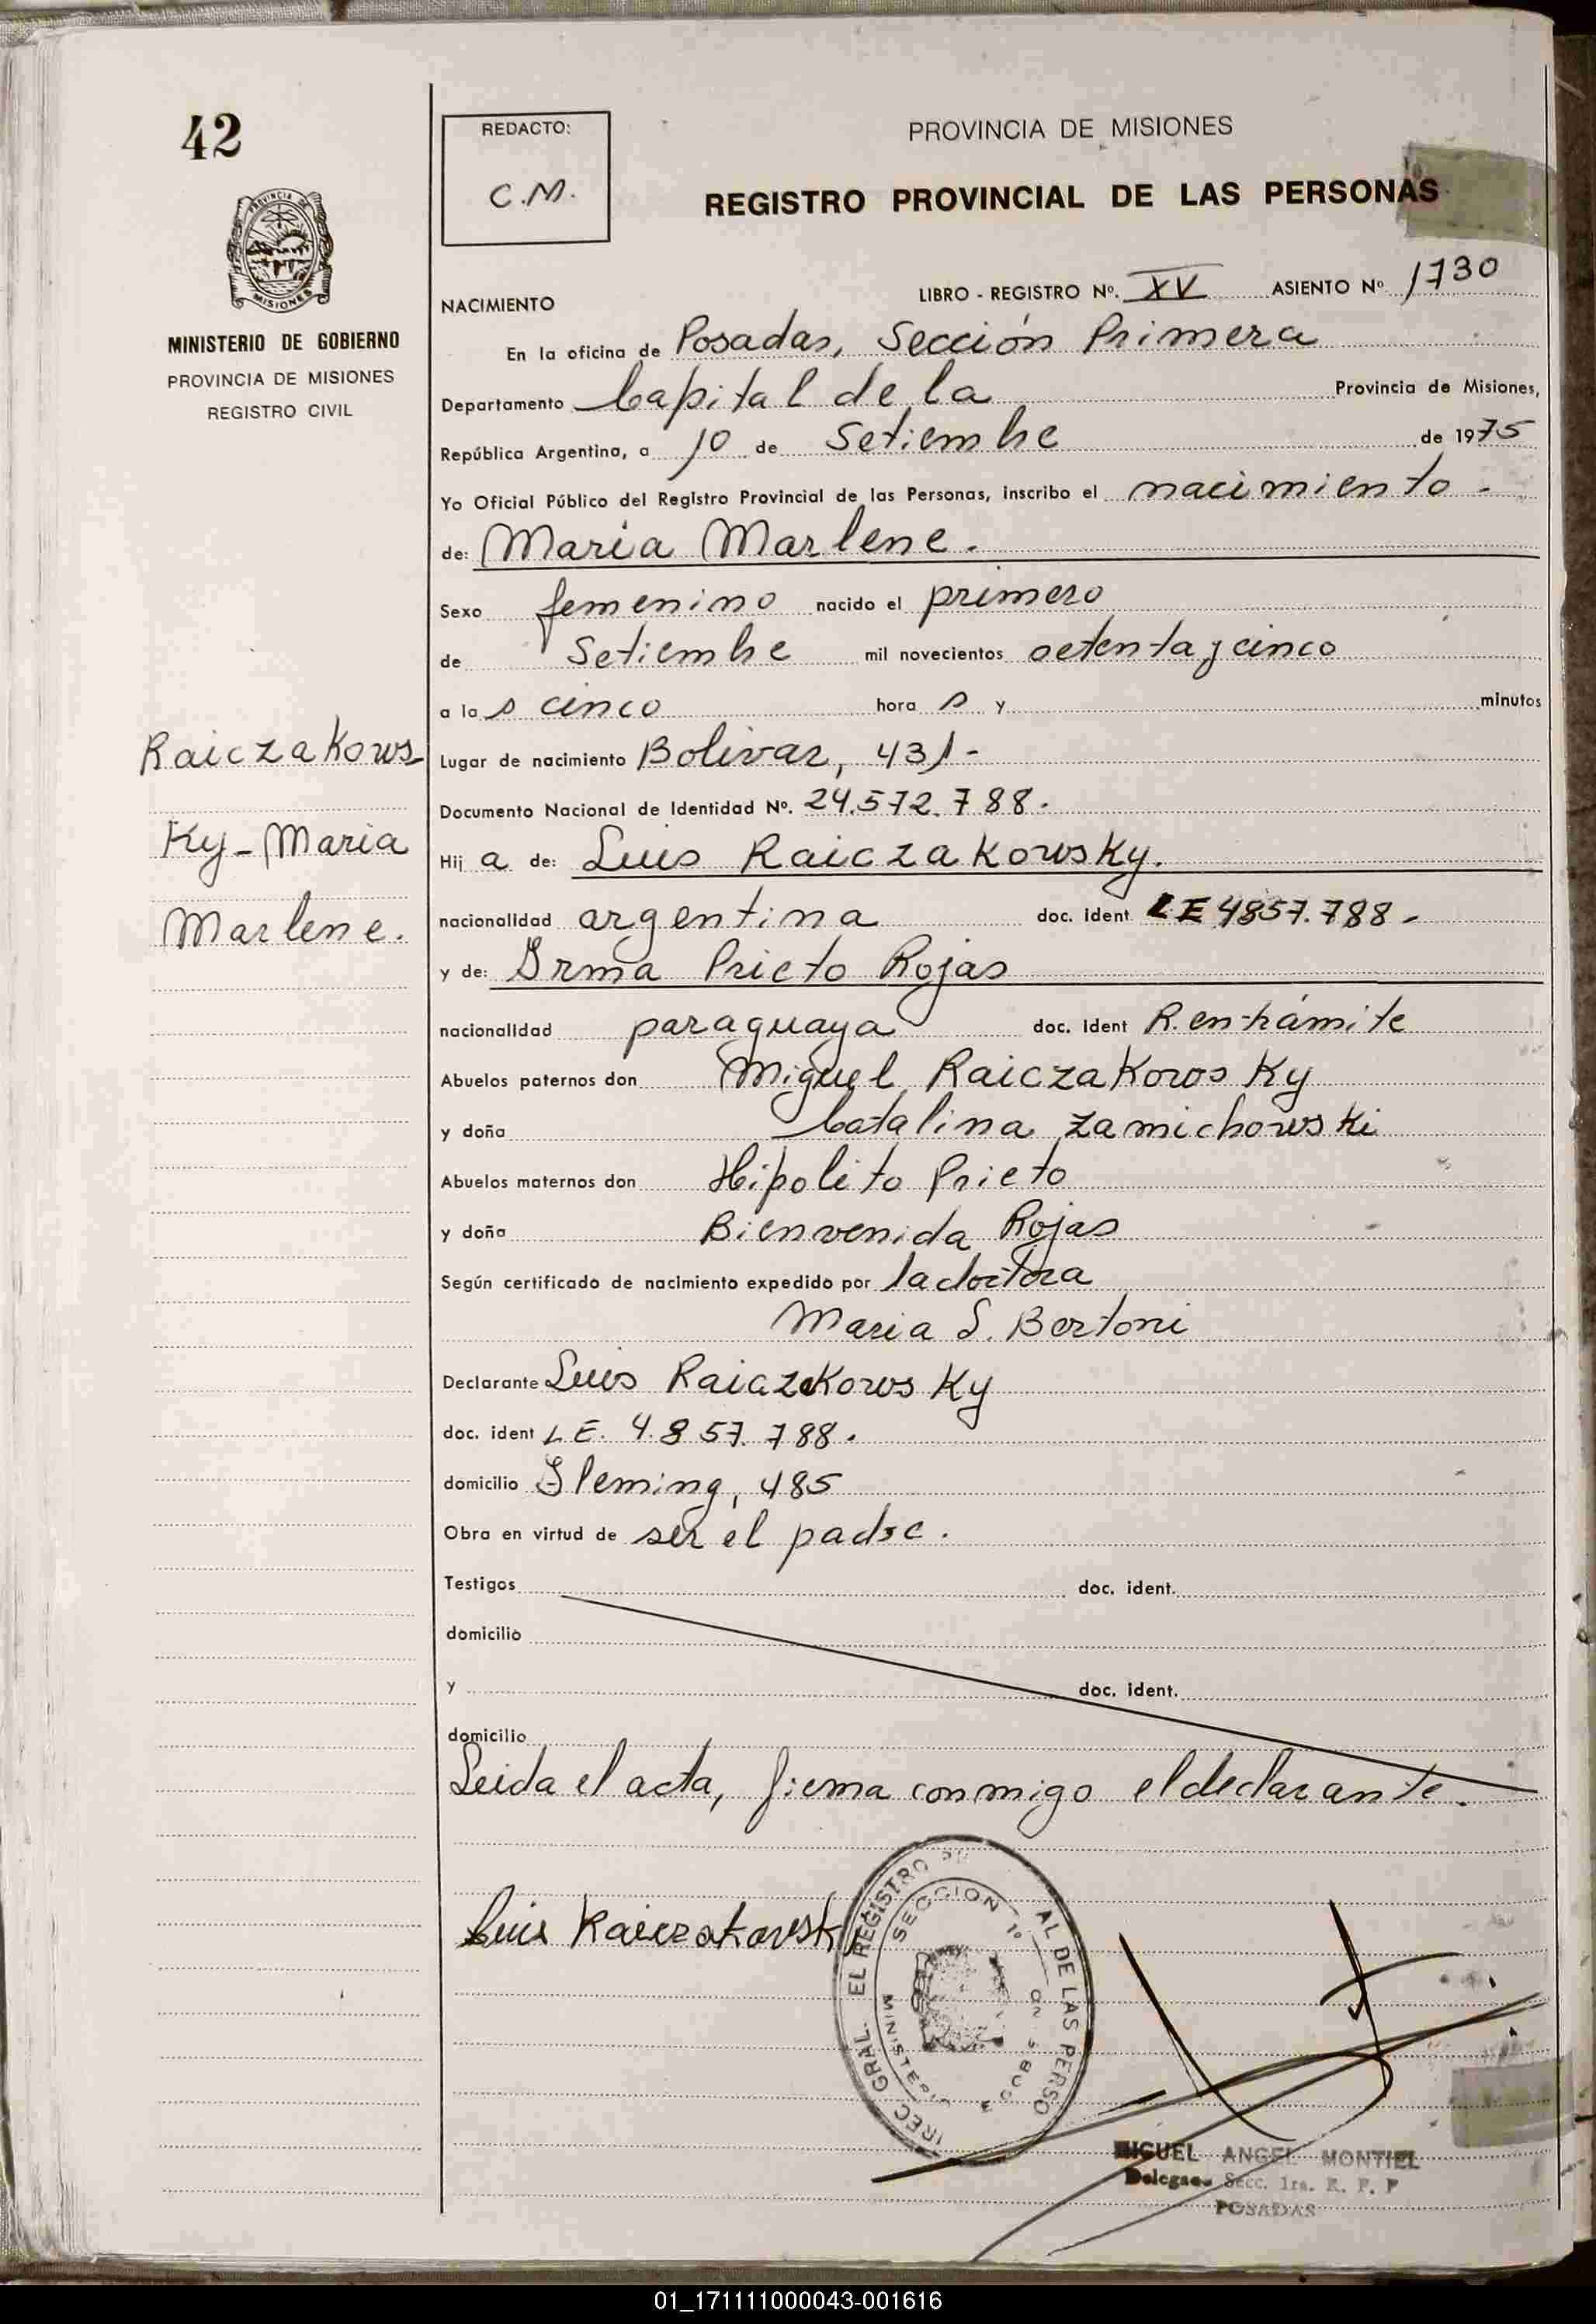 42
REDACTO:
C.M.
PROVINCIA DE MISIONES
REGISTRO PROVINCIAL DE LAS PERSONAS
PROVINCIA DE
MISIONES
MINISTERIO DE GOBIERNO
PROVINCIA DE MISIONES
REGISTRO CIVIL
NACIMIENTO
LIBRO - REGISTRO Nº. XV ASIENTO Nº 1730
En la oficina de Posadas, Sección Primera
Departamento Capital de la Provincia de Misiones,
República Argentina, a 10 de Setiembre de 1975
Yo Oficial Público del Registro Provincial de las Personas, inscribo el nacimiento -
de: María Marlene.
Sexo femenino nacido el primero
de Setiembre mil novecientos setenta y cinco
a la s cinco hora s y minutos
Lugar de nacimiento Bolivar, 431-
Documento Nacional de Identidad Nº. 24.572.788.
Hij a de: Luis Raiczakowsky.
nacionalidad argentina doc. ident LE 4857.788-
y de: Irma Prieto Rojas
nacionalidad paraguaya doc. ident R. en trámite
Abuelos paternos don Miguel Raiczakowsky
y doña Catalina Zamichowski
Abuelos maternos don Hipolito Prieto
y doña Bienvenida Rojas
Según certificado de nacimiento expedido por la doctora
Maria S. Bertoni
Declarante Luis Raiczakowsky
doc. ident LE. 4.857.788.
domicilio Fleming, 485
Obra en virtud de ser el padre.
Testigos doc. ident.
domicilio
y doc. ident.
domicilio
Leida el acta, firma conmigo el declarante.
Raiczakows-
Ky-Maria
Marlene.
Luis Raiczakowsk
EL REGISTRO
AL DE LAS PERSO
SECCION 1º
MINISTERIO
E GOB
IREC. GRAL.
MIGUEL ANGEL MONTIEL
Delegado Secc. 1ra. R. P. P
POSADAS
01_171111000043-001616